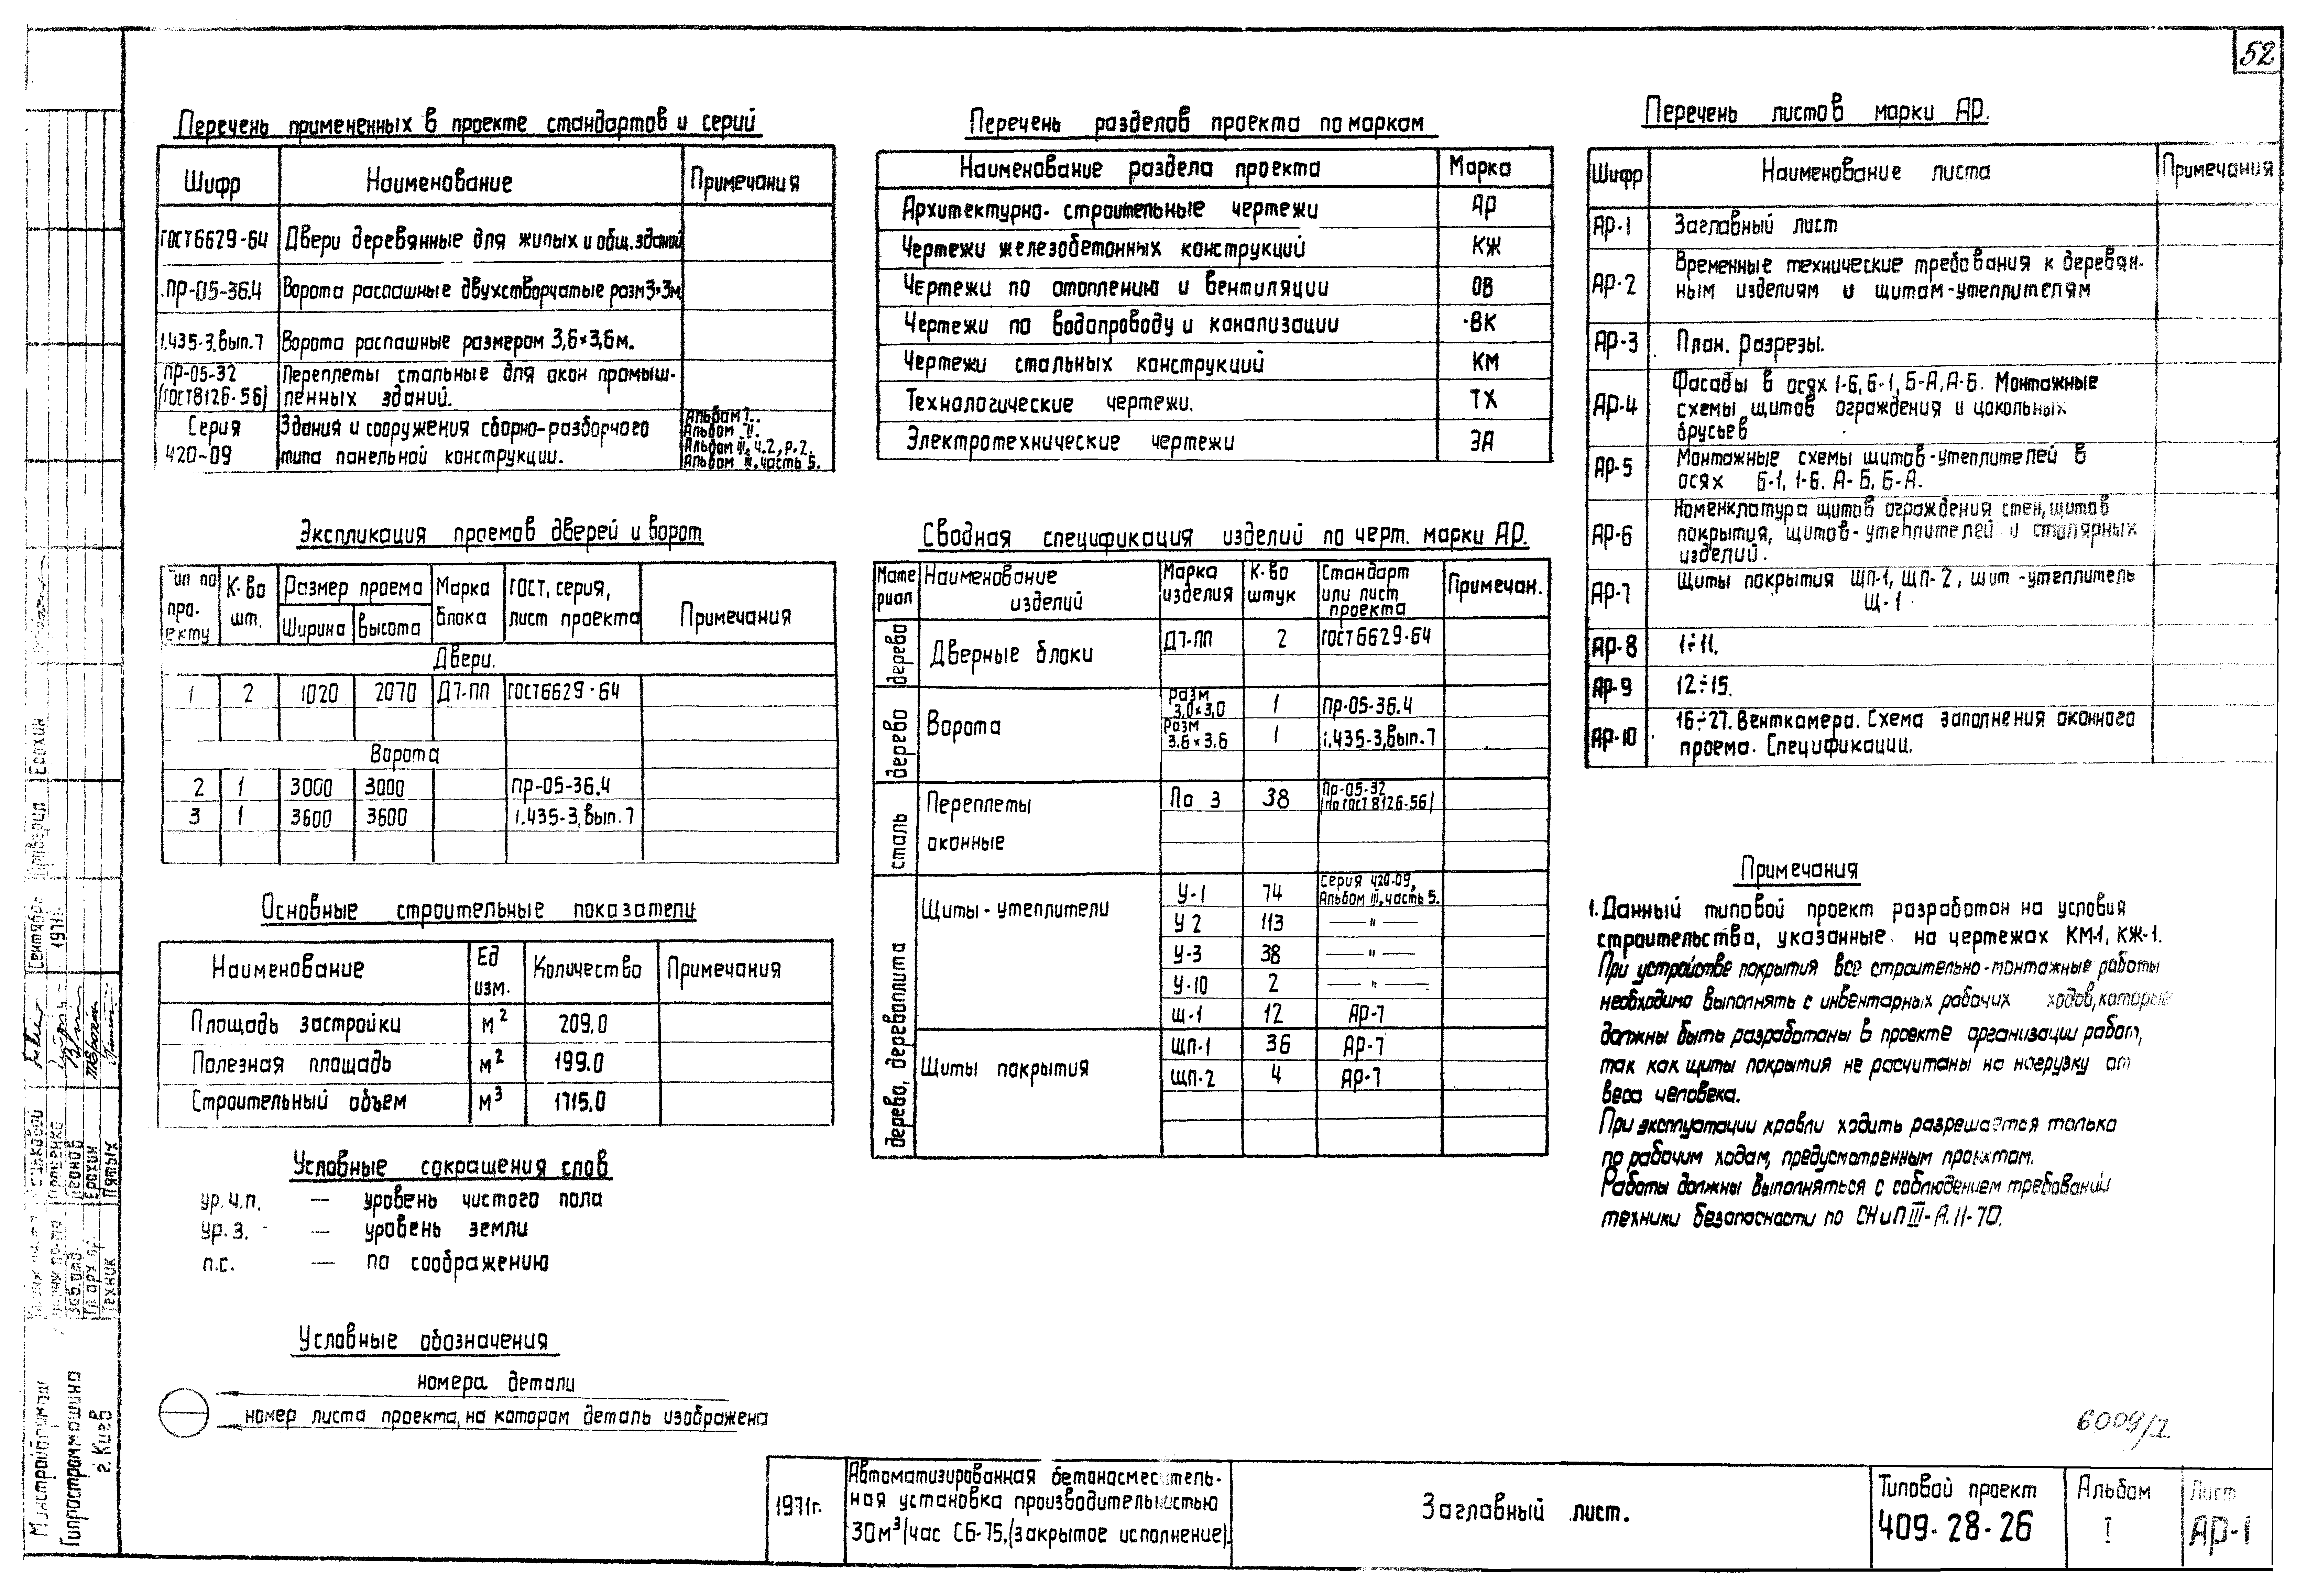 52
Перечень примененных в проекте стандартов и серий
Шифр Наименование Примечания
ГОСТ6629-64 Двери деревянные для жилых и общ. зданий
ПР-05-36.4 Ворота распашные двухстворчатые разм 3×3м
1.435-3, вып.7 Ворота распашные размером 3,6×3,6м.
ПР-05-32 Переплеты стальные для окон промыш-
(ГОСТ8126-56) ленных зданий.
Серия Здания и сооружения сборно-разборного
420-09 типа панельной конструкции.
Альбом I.
Альбом II.
Альбом III, ч.2, р.2.
Альбом III, часть 5.
Экспликация проемов дверей и ворот
Тип по проекту К-во шт. Размер проема Марка блока ГОСТ, серия, лист проекта Примечания
Ширина Высота
Двери.
1 2 1020 2070 Д7-ПП ГОСТ6629-64
Ворота
2 1 3000 3000 ПР-05-36.4
3 1 3600 3600 1.435-3, вып.7
Основные строительные показатели
Наименование Ед изм. Количество Примечания
Площадь застройки м² 209.0
Полезная площадь м² 199.0
Строительный объем м³ 1715.0
Условные сокращения слов
ур.ч.п. — уровень чистого пола
ур.з. — уровень земли
п.с. — по соображению
Условные обозначения
номера детали
номер листа проекта, на котором деталь изображена
Перечень разделов проекта по маркам
Наименование раздела проекта Марка
Архитектурно-строительные чертежи АР
Чертежи железобетонных конструкций КЖ
Чертежи по отоплению и вентиляции ОВ
Чертежи по водопроводу и канализации ВК
Чертежи стальных конструкций КМ
Технологические чертежи. ТХ
Электротехнические чертежи ЭА
Сводная спецификация изделий по черт. марки АР.
Мате риал Наименование изделий Марка изделия К-во штук Стандарт или лист проекта Примечан.
дерево Дверные блоки Д7-ПП 2 ГОСТ6629-64
дерево Ворота Разм 3,0×3,0 1 ПР-05-36.4
Разм 3.6×3,6 1 1.435-3, вып.7
сталь Переплеты оконные По 3 38 ПР-05-32 (по ГОСТ 8126-56)
дерево, деревоплита Щиты-утеплители У-1 74 Серия 420-09, Альбом III, часть 5.
У 2 113 — " —
У-3 38 — " —
У-10 2 — " —
Щ-1 12 АР-7
Щиты покрытия ЩП-1 36 АР-7
ЩП-2 4 АР-7
Перечень листов марки АР.
Шифр Наименование листа Примечания
АР-1 Заглавный лист
АР-2 Временные технические требования к деревян-
ным изделиям и щитам-утеплителям
АР-3 План. Разрезы.
АР-4 Фасады в осях 1-6, 6-1, Б-А, А-Б. Монтажные
схемы щитов ограждения и цокольных
брусьев
АР-5 Монтажные схемы щитов-утеплителей в
осях 6-1, 1-6. А-Б, Б-А.
АР-6 Номенклатура щитов ограждения стен, щитов
покрытия, щитов-утеплителей и столярных
изделий.
АР-7 Щиты покрытия ЩП-1, ЩП-2, щит-утеплитель
Щ-1
АР-8 1÷11.
АР-9 12÷15.
АР-10 16÷27. Венткамера. Схема заполнения оконного
проема. Спецификации.
Примечания
1. Данный типовой проект разработан на условия
строительства, указанные на чертежах КМ-1, КЖ-1.
При устройстве покрытия все строительно-монтажные работы
необходимо выполнять с инвентарных рабочих ходов, которые
должны быть разработаны в проекте организации работ,
так как щиты покрытия не расчитаны на нагрузку от
веса человека.
При эксплуатации кровли ходить разрешается только
по рабочим ходам, предусмотренным проектом.
Работы должны выполняться с соблюдением требований
техники безопасности по СНиП III-А.11-70.
6009/1
1971г.
Автоматизированная бетоносмеситель-
ная установка производительностью
30м³/час СБ-75, (закрытое исполнение).
Заглавный лист.
Типовой проект
409-28-26
Альбом
I
Лист
АР-1
Гипростроммашина
г. Киев
техник Пятых
Ерохин
Проверил Ерохин
Сентябрь 1971г.